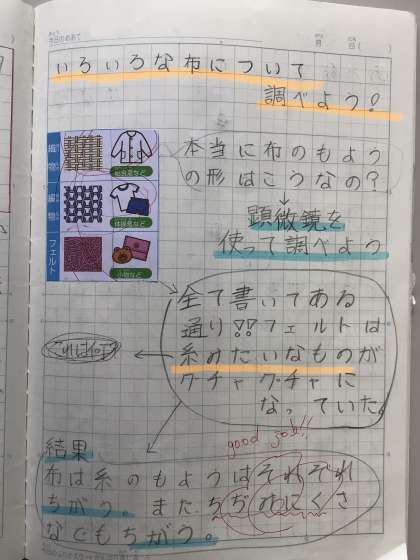 今日のめあて
月 日( )
いろいろな布について
調べよう!
織物
編物
フェルト
給食着など
体操服など
小物など
本当に布のもよう
の形はこうなの?
顕微鏡を
使って調べよう
全て書いてある
通り!!フェルトは
糸みたいなものが
グチャグチャに
なっていた。
これは何?
good job!!
結果
布は糸のもようはそれぞれ
ちがう。また、ちぢみにくさ
などもちがう。